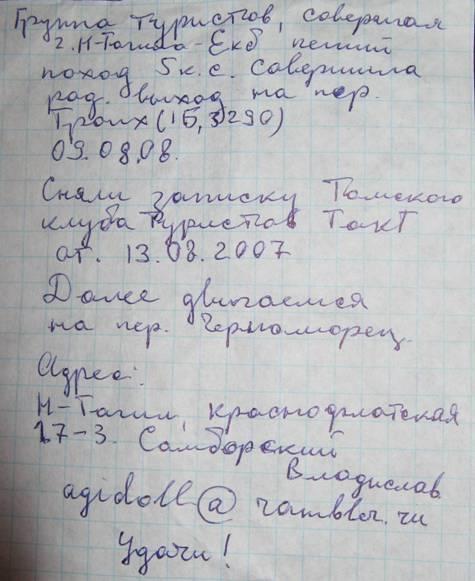 Группа туристов, совершая
г. Н-Тагила-Екб пеший
поход 5 к.с. Совершила
рад. выход на пер.
Троих (1Б, 3290)
09.08.08.
Сняли записку Томского
клуба туристов ТакТ
от. 13.08.2007
Далее двигаемся
на пер. Черноморец.
Адрес:
Н-Тагил, краснофлотская
17-3. Самборский
Владислав
agidoll@rambler.ru
Удачи!